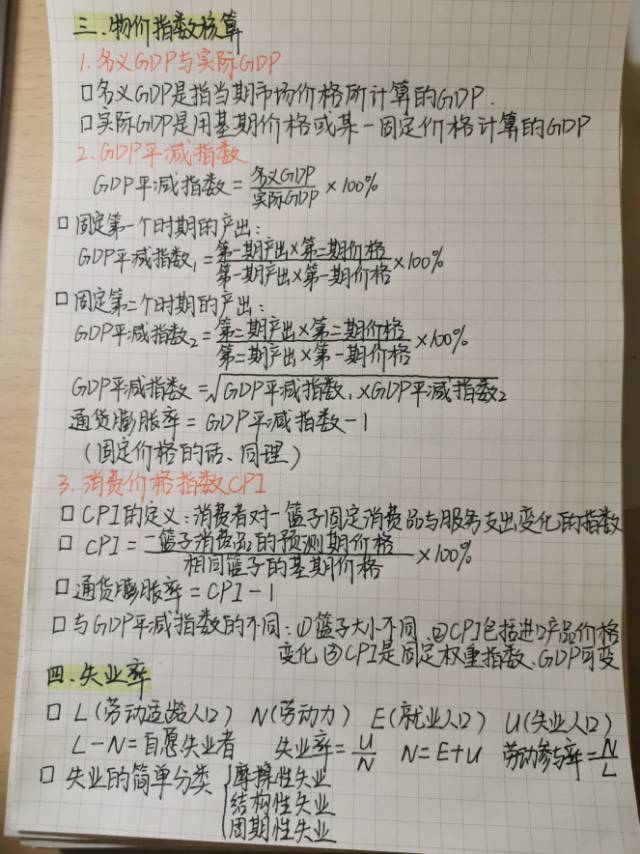 三.物价指数核算
1.名义GDP与实际GDP
□名义GDP是指当期市场价格所计算的GDP.
□实际GDP是用基期价格或某一固定价格计算的GDP
2.GDP平减指数
GDP平减指数=名义GDP/实际GDP×100%
□固定第一个时期的产出:
GDP平减指数1=第一期产出×第二期价格/第一期产出×第一期价格×100%
□固定第二个时期的产出:
GDP平减指数2=第二期产出×第二期价格/第二期产出×第一期价格×100%
GDP平减指数=√GDP平减指数1×GDP平减指数2
通货膨胀率=GDP平减指数-1
(固定价格的话、同理)
3.消费价格指数CPI
□CPI的定义:消费者对一篮子固定消费品与服务支出变化的指数
□CPI=一篮子消费品的预测期价格/相同篮子的基期价格×100%
□通货膨胀率=CPI-1
□与GDP平减指数的不同:①篮子大小不同 ②CPI包括进口产品价格
变化 ③CPI是固定权重指数、GDP可变
四.失业率
□L(劳动适龄人口) N(劳动力) E(就业人口) U(失业人口)
L-N=自愿失业者 失业率=U/N N=E+U 劳动参与率=N/L
□失业的简单分类{摩擦性失业
结构性失业
周期性失业